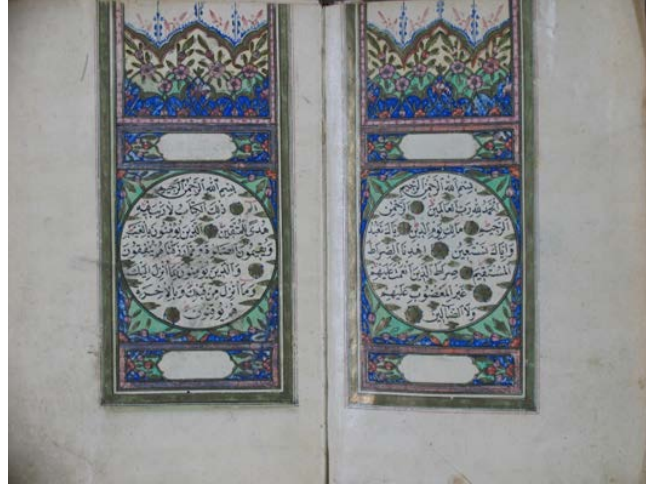 بسم الله الرحمن الرحيم
الحمد لله رب العالمين الرحمن
الرحيم مالك يوم الدين اياك نعبد
واياك نستعين اهدنا الصراط
المستقيم صراط الذين انعمت عليهم
غير المغضوب عليهم
ولا الضالين
بسم الله الرحمن الرحيم
ذلك الكتاب لا ريب فيه
هدى للمتقين الذين يؤمنون بالغيب
ويقيمون الصلوة ومما رزقناهم ينفقون
والذين يؤمنون بما انزل اليك
وما انزل من قبلك وبالاخرة
هم يوقنون